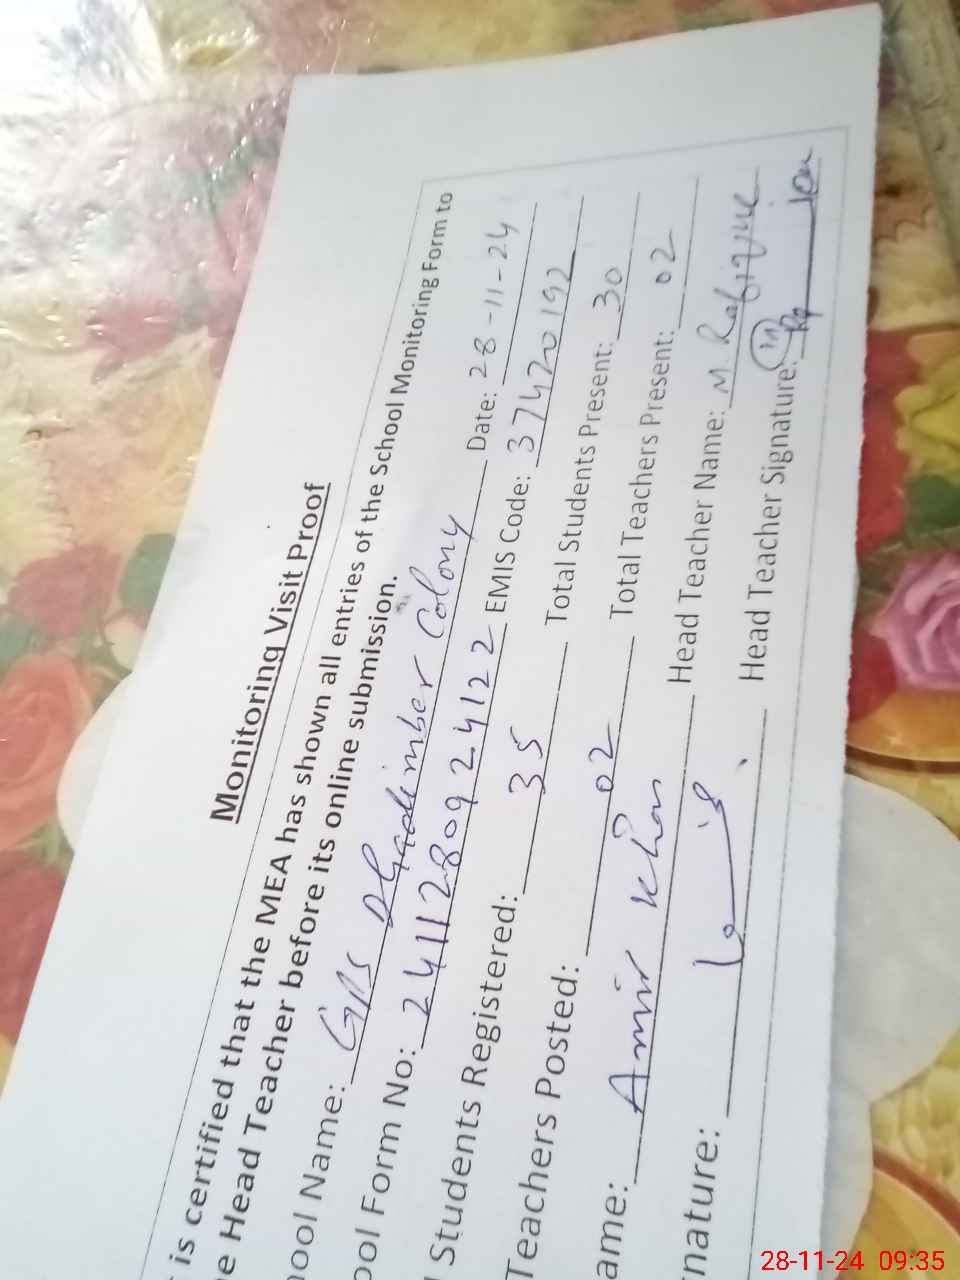 Monitoring Visit Proof
is certified that the MEA has shown all entries of the School Monitoring Form to
e Head Teacher before its online submission.
hool Name: GPS Dhadimber Colony Date: 28-11-24
ool Form No: 24112809 2412 2 EMIS Code: 37420192
Students Registered: 35 Total Students Present: 30
Teachers Posted: 02 Total Teachers Present: 02
ame: Amir Khan Head Teacher Name: M. Rafique
nature: Head Teacher Signature:
28-11-24 09:35